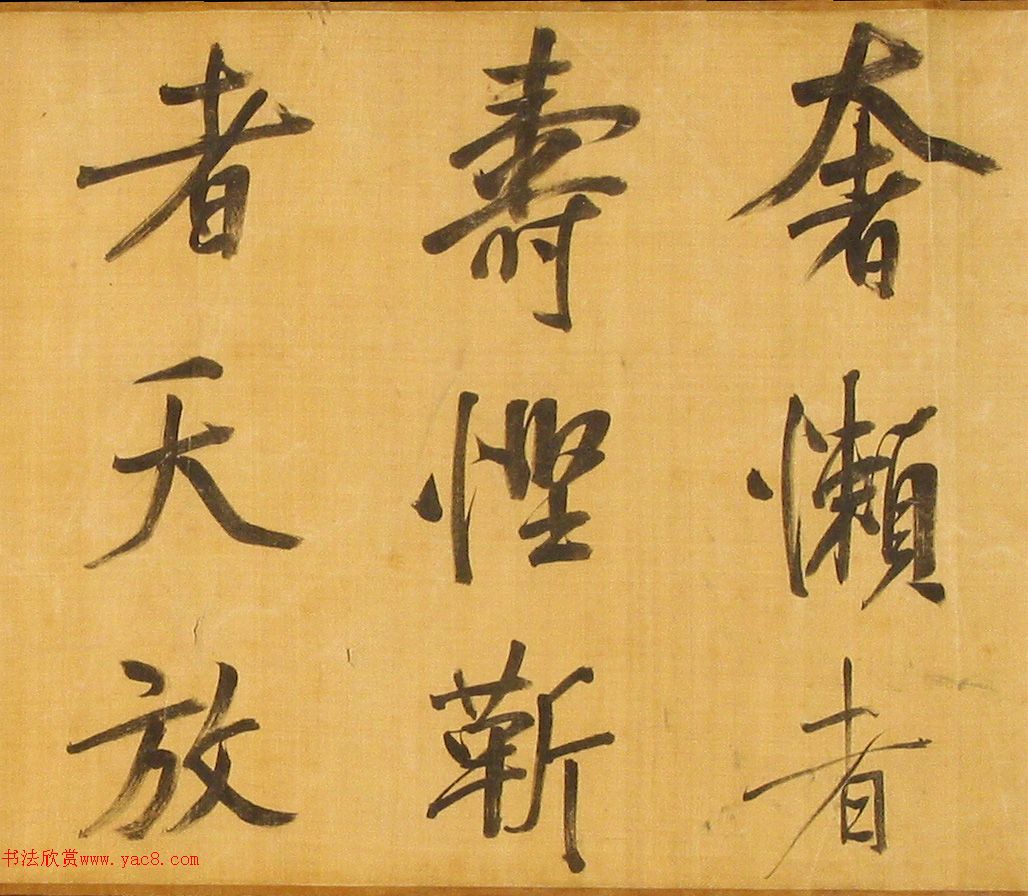 奢懶者
壽慳靳
者夭放
书法欣赏www.yac8.com